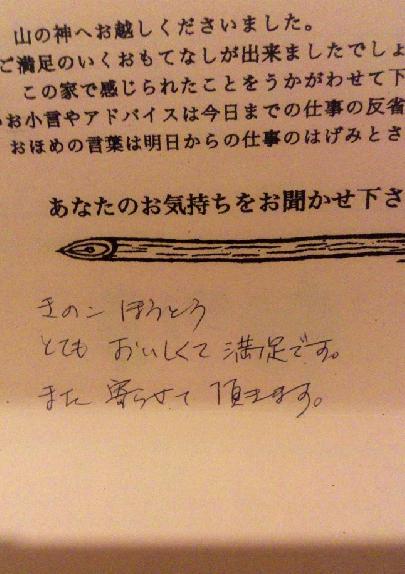 山の神へお越しくださいました。
ご満足のいくおもてなしが出来ましたでしょ
この家で感じられたことをうかがわせて下
お小言やアドバイスは今日までの仕事の反省
おほめの言葉は明日からの仕事のはげみとさ
あなたのお気持ちをお聞かせ下さ
きのこ ほうとう
とても おいしくて 満足です。
また 寄らせて 頂きます。